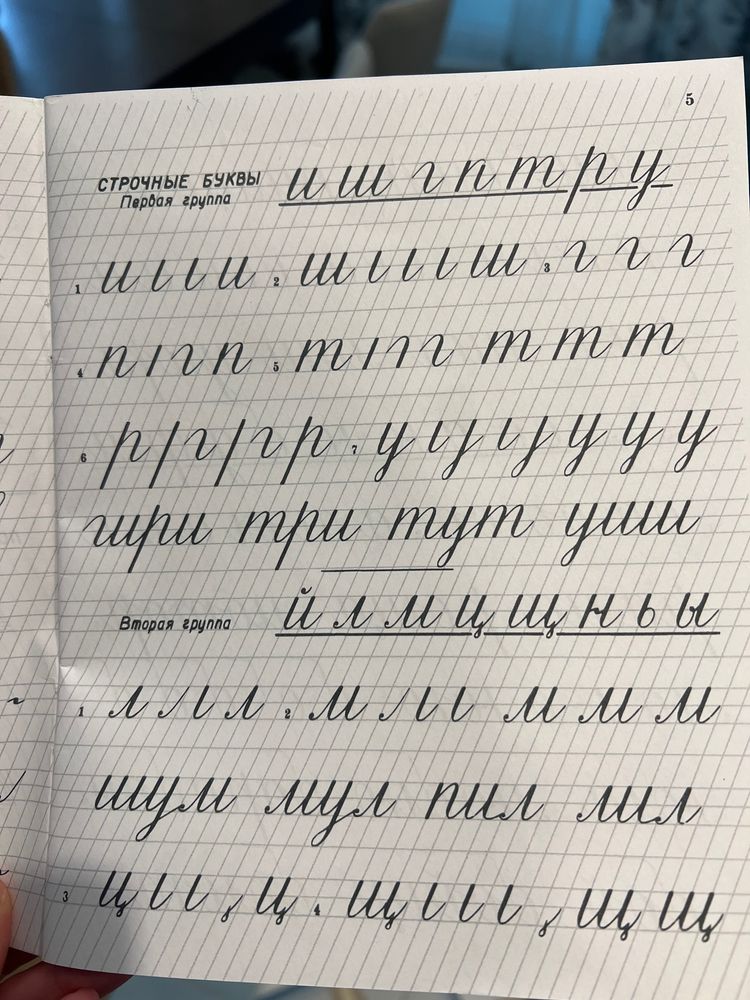 5
СТРОЧНЫЕ БУКВЫ
Первая группа
и ш г п т р у
1 и и 2 ш ш 3 г г г
4 п г п 5 т г т т т
6 р г г р 7 у у у у
три тут уши
Вторая группа
й л м ц щ н ь ы
1 л л 2 м м м м
шум мул пил лил
3 ц ц 4 щ щ щ